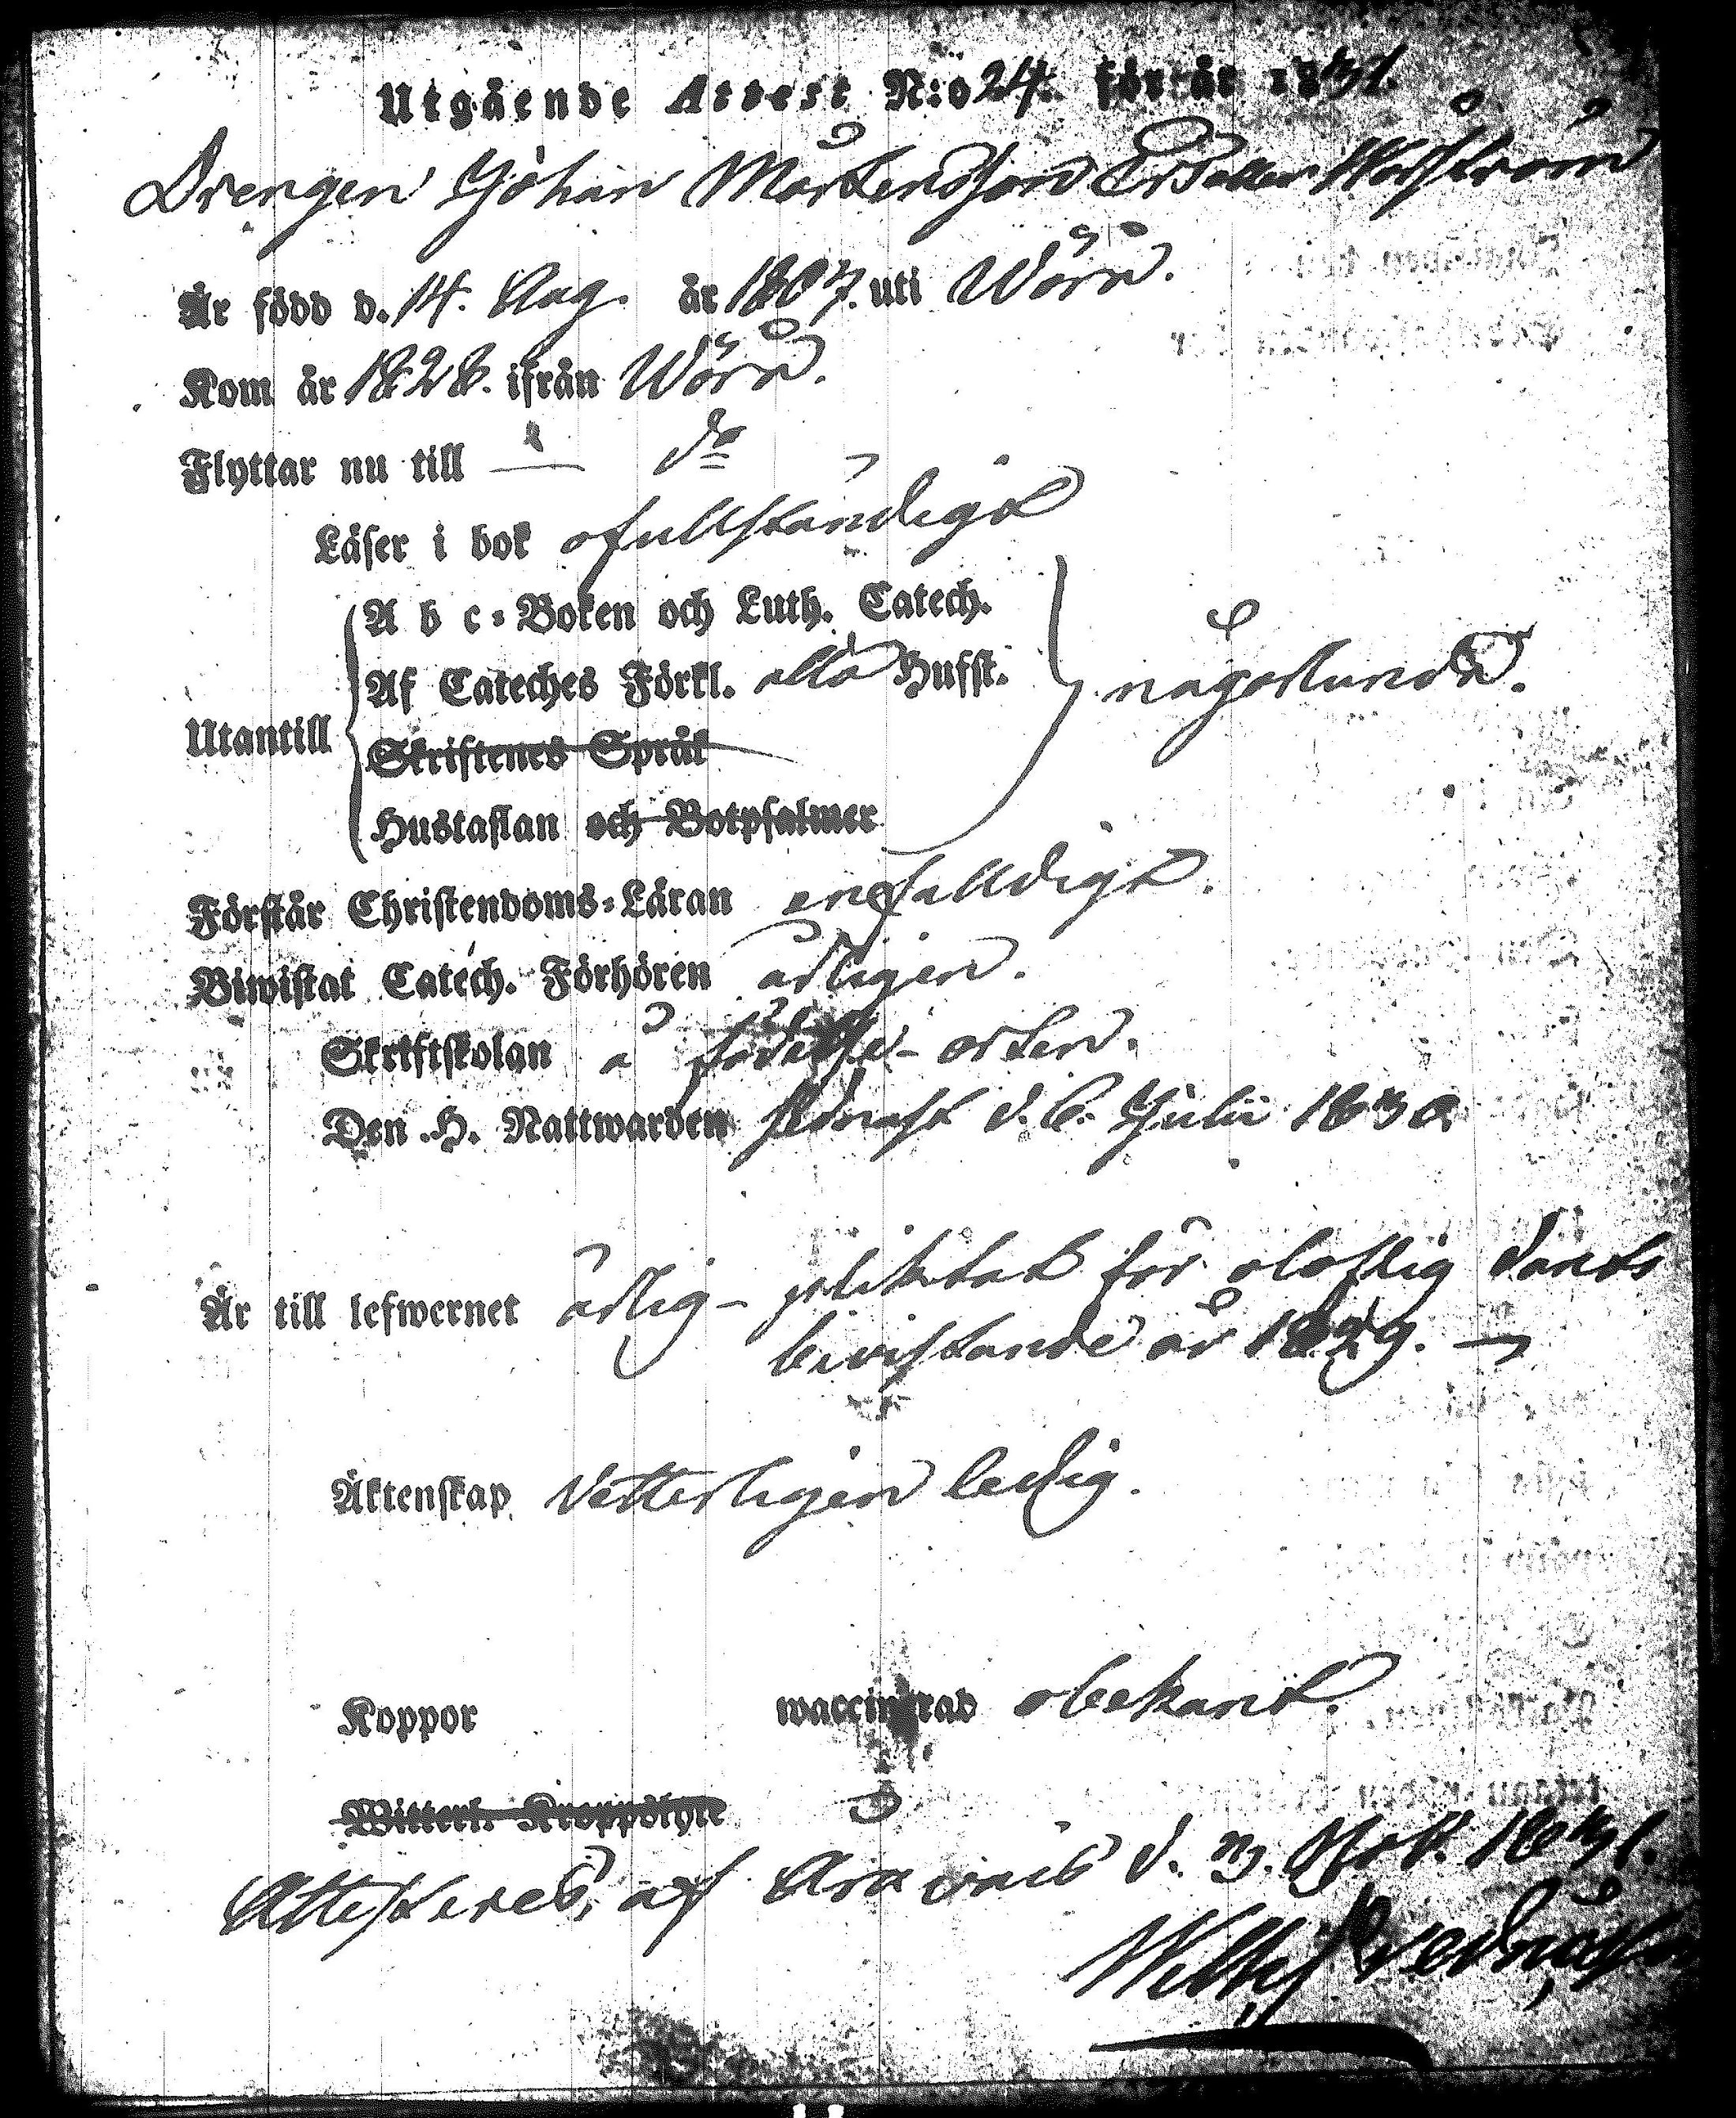 Utgående Attest N:o 24. för år 1831.
Drengen Johan Mårtensson
Är född d. 14. Aug. år 1807. uti Wörå.
Kom år 1828. ifrån Wörå.
Flyttar nu till — do
Läser i bok ofullständigt
A b c-Boken och Luth. Catech.
Af Cateches Förkl. alla Hufst.
Utantill någorlunda.
Skriftenes Språk
Hustaflan och Botpsalmer
Förstår Christendoms-Läran enfalldigt.
Biwistat Catech. Förhören årligen.
Skriftskolan å födelse-orten.
Den H. Nattwarden sednast d. 6. Julii 1830
Är till lefwernet ärlig - pliktat för oloflig dants
bivistande år 1829. —
Äktenskap Vetterligen ledig.
Koppor waccinerad obekant.
Witterl. Kroppslyte
Attesteres, af d. 3. 1831.